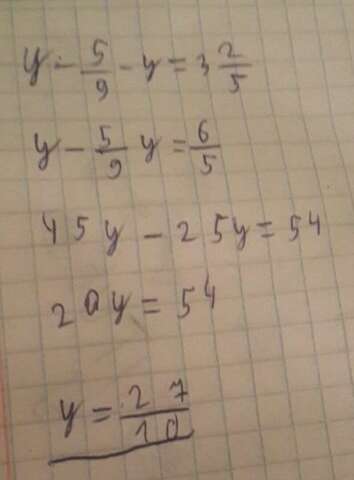 y - 5/9 - y = 3 2/5
y - 5/9 y = 6/5
45y - 25y = 54
20y = 54
y = 27/10